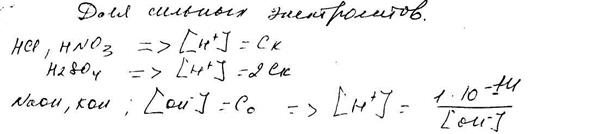 Для сильных электролитов.
HCl, HNO3 => [H⁺] = Cк
H2SO4 => [H⁺] = 2Cк
NaOH, KOH; [OH⁻] = Co => [H⁺] = 1·10⁻¹⁴/[OH⁻]